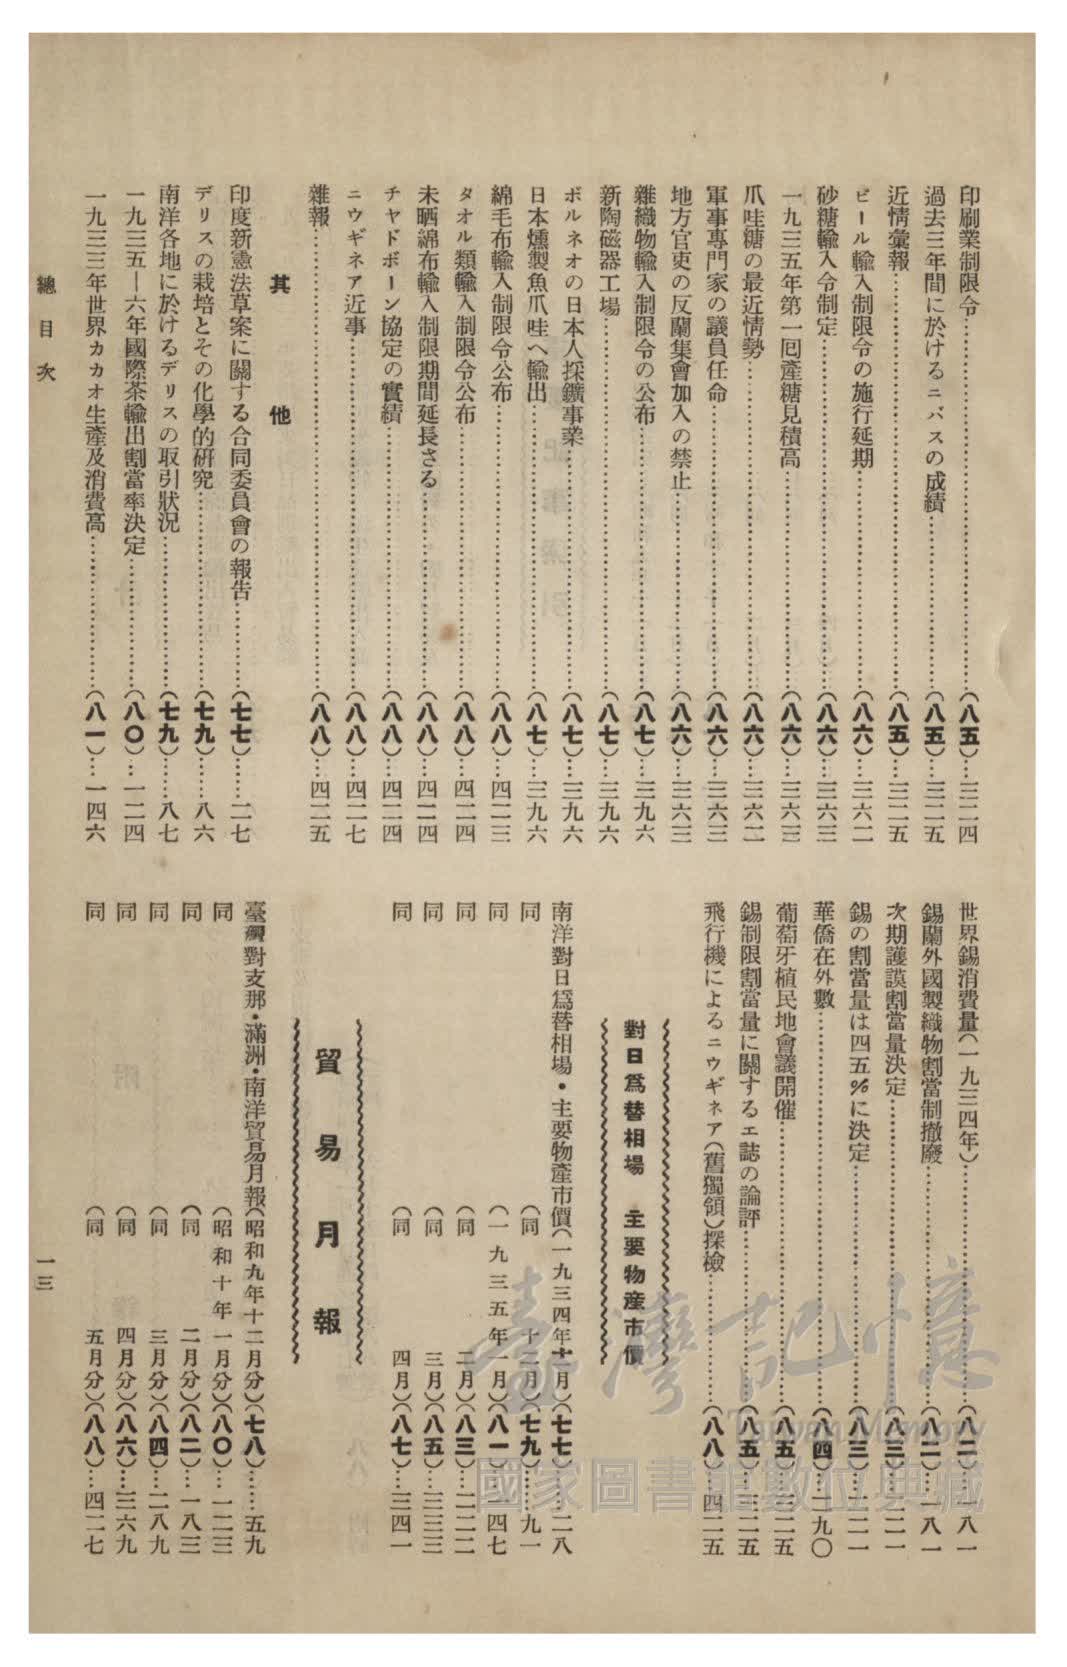 印刷業制限令……(八五)…三二四
過去三年間に於けるニバスの成績……(八五)…三二五
近情彙報……(八五)…三二五
ビール輸入制限令の施行延期……(八六)…三六二
砂糖輸入令制定……(八六)…三六三
一九三五年第一囘產糖見積高……(八六)…三六三
爪哇糖の最近情勢……(八六)…三六二
軍事專門家の議員任命……(八六)…三六三
地方官吏の反蘭集會加入の禁止……(八六)…三六三
雜織物輸入制限令の公布……(八七)…三九六
新陶磁器工場……(八七)…三九六
ボルネオの日本人採鑛事業……(八七)…三九六
日本燻製魚爪哇へ輸出……(八七)…三九六
綿毛布輸入制限令公布……(八八)…四二三
タオル類輸入制限令公布……(八八)…四二四
未晒綿布輸入制限期間延長さる……(八八)…四二四
チャドボーン協定の實績……(八八)…四二四
ニウギネア近事……(八八)…四二七
雜報……(八八)…四二五
其他
印度新憲法草案に關する合同委員會の報告……(七七)……二七
デリスの栽培とその化學的硏究……(七九)……八六
南洋各地に於けるデリスの取引狀況……(七九)……八七
一九三五—六年國際茶輸出割當率決定……(八〇)…一二四
一九三三年世界カカオ生產及消費高……(八一)…一四六
世界錫消費量(一九三四年)……(八二)…一八一
錫蘭外國製織物割當制撤廢……(八二)…一八一
次期護謨割當量決定……(八三)…二二一
錫の割當量は四五%に決定……(八三)…二二一
華僑在外數……(八四)…二九〇
葡萄牙植民地會議開催……(八五)…三二五
錫制限割當量に關するエ誌の論評……(八五)…三二五
飛行機によるニウギネア(舊獨領)探檢……(八八)…四二五
對日爲替相場 主要物產市價
南洋對日爲替相場・主要物產市價(一九三四年十一月)(七七)……二八
同 (同 十二月)(七九)……九一
同 (一九三五年一月)(八一)…一四七
同 (同 二月)(八三)…二二二
同 (同 三月)(八五)…三三三
同 (同 四月)(八七)…三四一
貿易月報
臺灣對支那・滿洲・南洋貿易月報(昭和九年十二月分)(七八)……五九
同 (昭和十年一月分)(八〇)…一二三
同 (同 二月分)(八二)…一八三
同 (同 三月分)(八四)…二八九
同 (同 四月分)(八六)…三六九
同 (同 五月分)(八八)…四二七
總目次
一三
臺灣記憶
Taiwan Memory
國家圖書館數位典藏